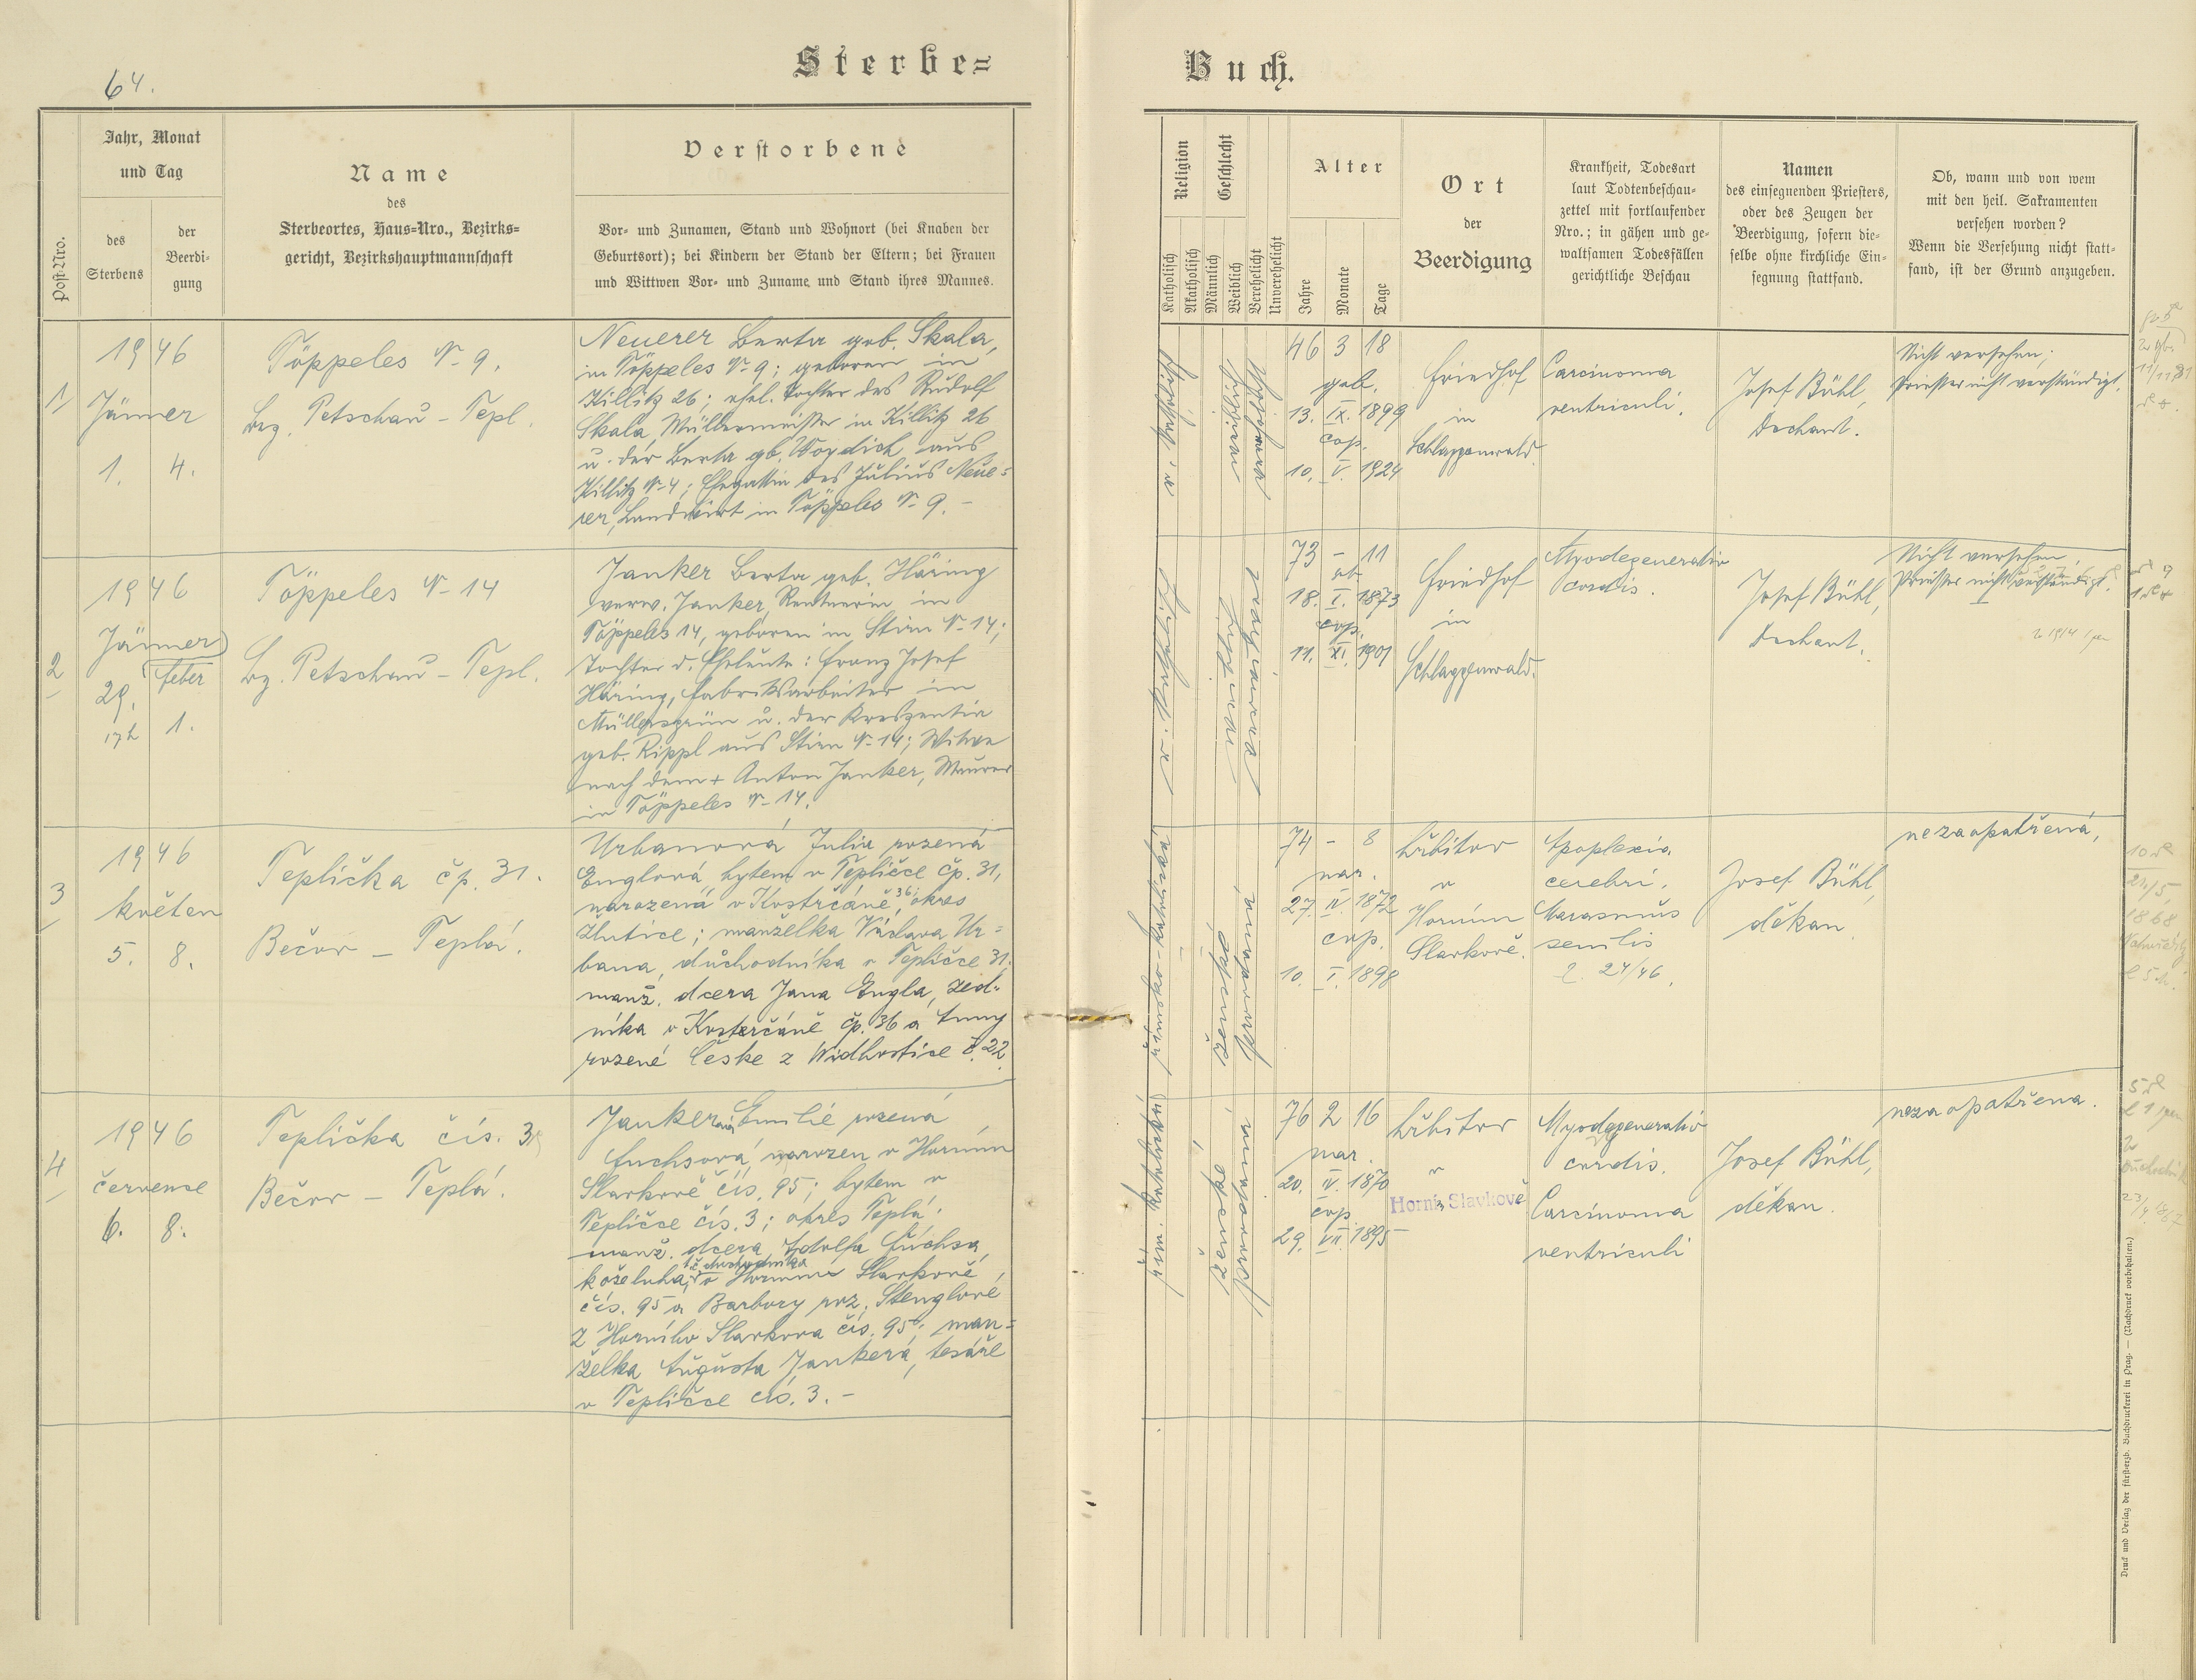 64.
Sterbe=
Buch.
Post-Nro.
Jahr, Monat
und Tag
des
Sterbens
der
Beerdi-
gung
Name
des
Sterbeortes, Haus=Nro., Bezirks=
gericht, Bezirkshauptmannschaft
Verstorbene
Vor- und Zunamen, Stand und Wohnort (bei Knaben der
Geburtsort); bei Kindern der Stand der Eltern; bei Frauen
und Wittwen Vor- und Zuname und Stand ihres Mannes.
Religion
Katholisch
Akatholisch
Geschlecht
Männlich
Weiblich
Verehelicht
Unverehelicht
Alter
Jahre
Monate
Tage
Ort
der
Beerdigung
Krankheit, Todesart
laut Todtenbeschau-
zettel mit fortlaufender
Nro.; in gähen und ge-
waltsamen Todesfällen
gerichtliche Beschau
Namen
des einsegnenden Priesters,
oder des Zeugen der
Beerdigung, sofern die-
selbe ohne kirchliche Ein-
segnung stattfand.
Ob, wann und von wem
mit den heil. Sakramenten
versehen worden?
Wenn die Versehung nicht statt-
fand, ist der Grund anzugeben.
1
1946
Jänner
1. 4.
Töppeles № 9.
Bez. Petschau - Tepl.
Neuerer Berta geb. Skala,
in Töppeles № 9; geboren in
Killitz 26; ehel. Tochter des Rudolf
Skala, Müllermeister in Killitz 26
u. der Berta gb. aus
Killitz № 4; Ehegattin des Julius Neue=
rer, Landwirt in Töppeles № 9. -
46 3 18
geb.
13. IX. 1899
cop.
10. V. 1924
Friedhof
in
Schlaggenwald.
Carcinoma
ventriculi.
Josef Bühl,
Dechant.
Nicht versehen;
Priester nicht verständigt.
2
1946
Jänner
Feber
29. 1.
17h
Töppeles № 14
Bz. Petschau - Tepl.
Janker Berta geb. Häring
verw. Janker, Rentnerin in
Töppeles 14, geboren in Stirn № 14;
Tochter d. Eheleute: Franz Josef
Häring, Fabriksarbeiter in
Müllersgrün u. der Kreszentia
geb. Rippl aus Stirn № 14; Witwe
nach dem + Anton Janker, Maurer
in Töppeles № 14.
73 - 11
gb.
18. I. 1873
cop.
11. XI. 1901
Friedhof
in
Schlaggenwald.
Myodegeneratio
cordis.
Josef Bühl,
Dechant.
Nicht versehen,
Priester nicht verständigt.
3
1946
květen
5. 8.
Teplička čp. 31.
Bečov - Teplá.
Urbanová Julia rozená
Englová, bytem v Tepličce čp. 31,
narozená v Kostrčáně, 36, okres
Žlutice; manželka Václava Ur=
bana, důchodníka v Tepličce 31.
manž. dcera Jana Engla, zed-
níka v Kosterčáně čp. 36 a Anny
rozené České z Widhostice č. 22.
římsko-katolická
ženské
provdaná
74 - 8
nar.
27. IV. 1872
cop.
10. I. 1898
Hřbitov
v
Horním
Slavkově.
Apoplexia
cerebri.
Marasmus
senilis
24/46.
Josef Bühl,
děkan
nezaopatřená,
4
1946
července
6. 8.
Teplička čís. 3
Bečov - Teplá.
Jankerová Emilie rozená
Fuchsová, narozen v Horním
Slavkově čís. 95; bytem v
Tepličce čís. 3; okres Teplá.
manž. dcera Adolfa Fuchsa,
koželuha, v Horním Slavkově
čís. 95 a Barbory roz. Stenglové
z Horního Slavkova čís. 95; man=
želka Augusta Jankera, tesáře
v Tepličce čís. 3. -
řím. katolická
ženské
provdaná
76 2 16
nar.
20. IV. 1870
cop
29. VII. 1895
Hřbitov
v
Horní Slavkově
Myodegeneratio
cordis.
Carcinoma
ventriculi
Josef Bühl,
děkan.
nezaopatřena.
Druck und Verlag der fürst-erzb. Buchdruckerei in Prag. — (Nachdruck vorbehalten.)